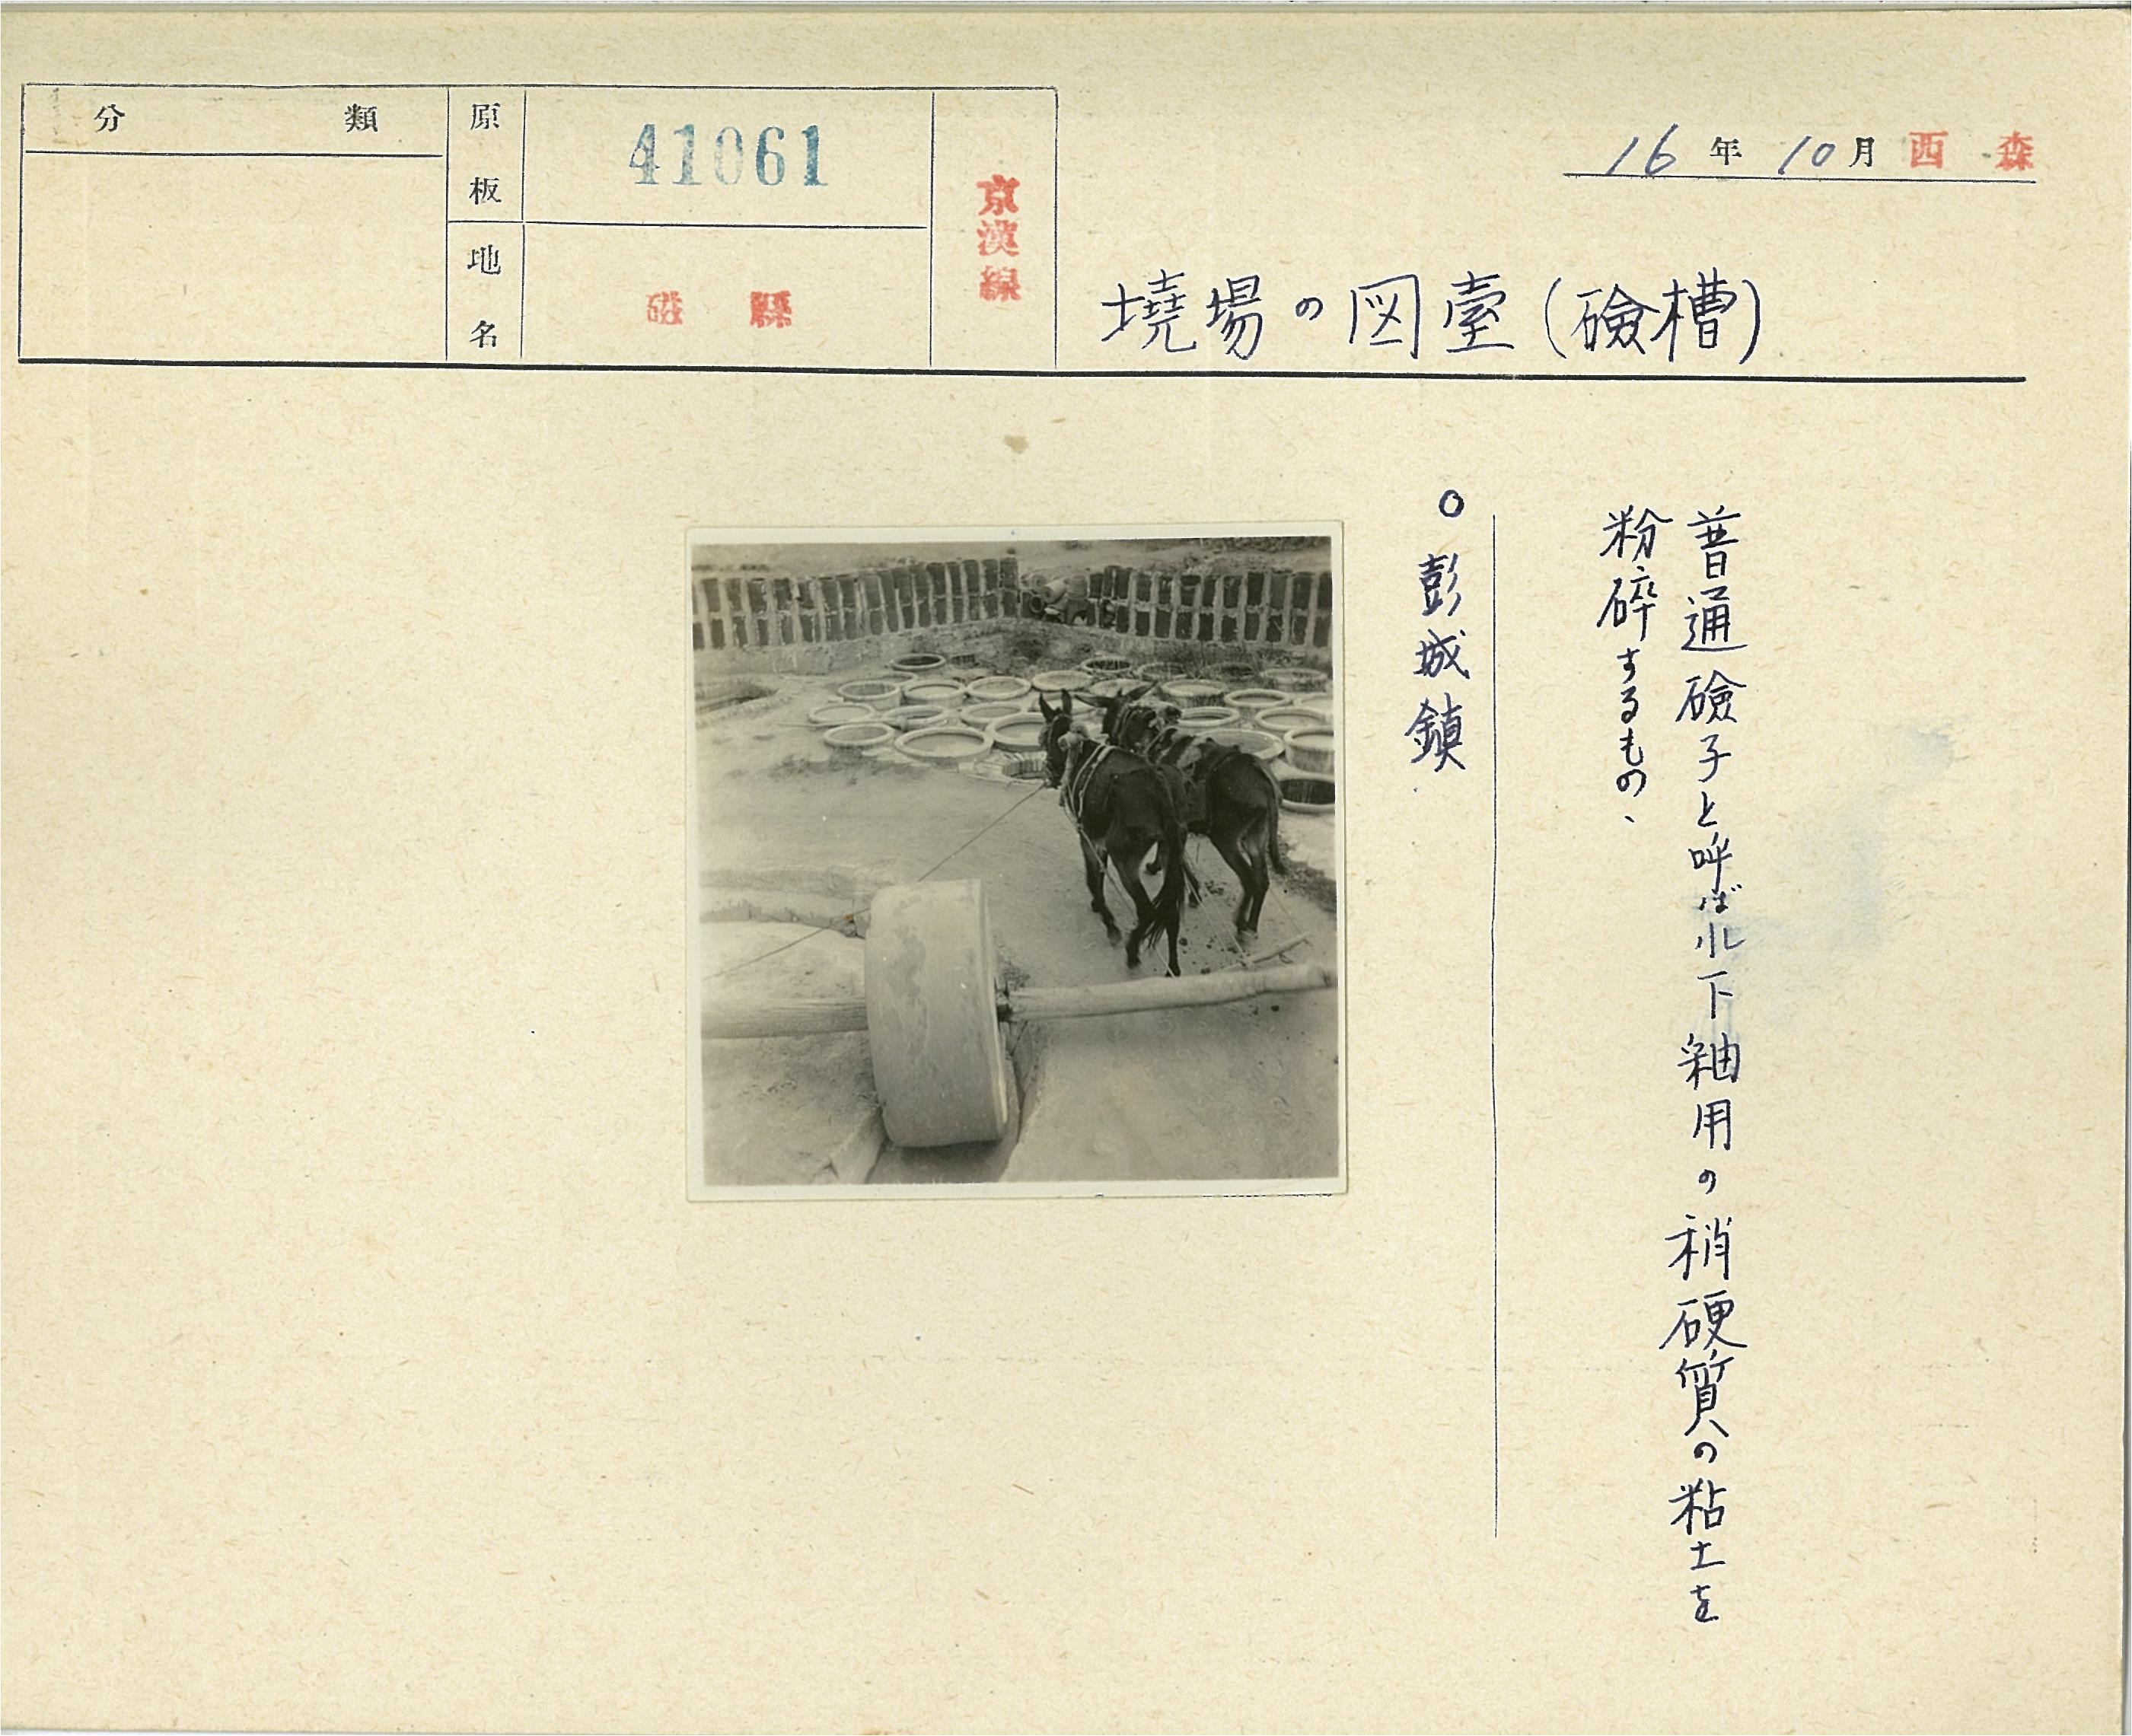 分類
原板
41061
地名
磁縣
京漢線
16年10月 西森
境場の図臺(礆槽)
普通礆子と呼ばれ下釉用の稍硬質の粘土を
粉碎するもの、
○彭城鎮